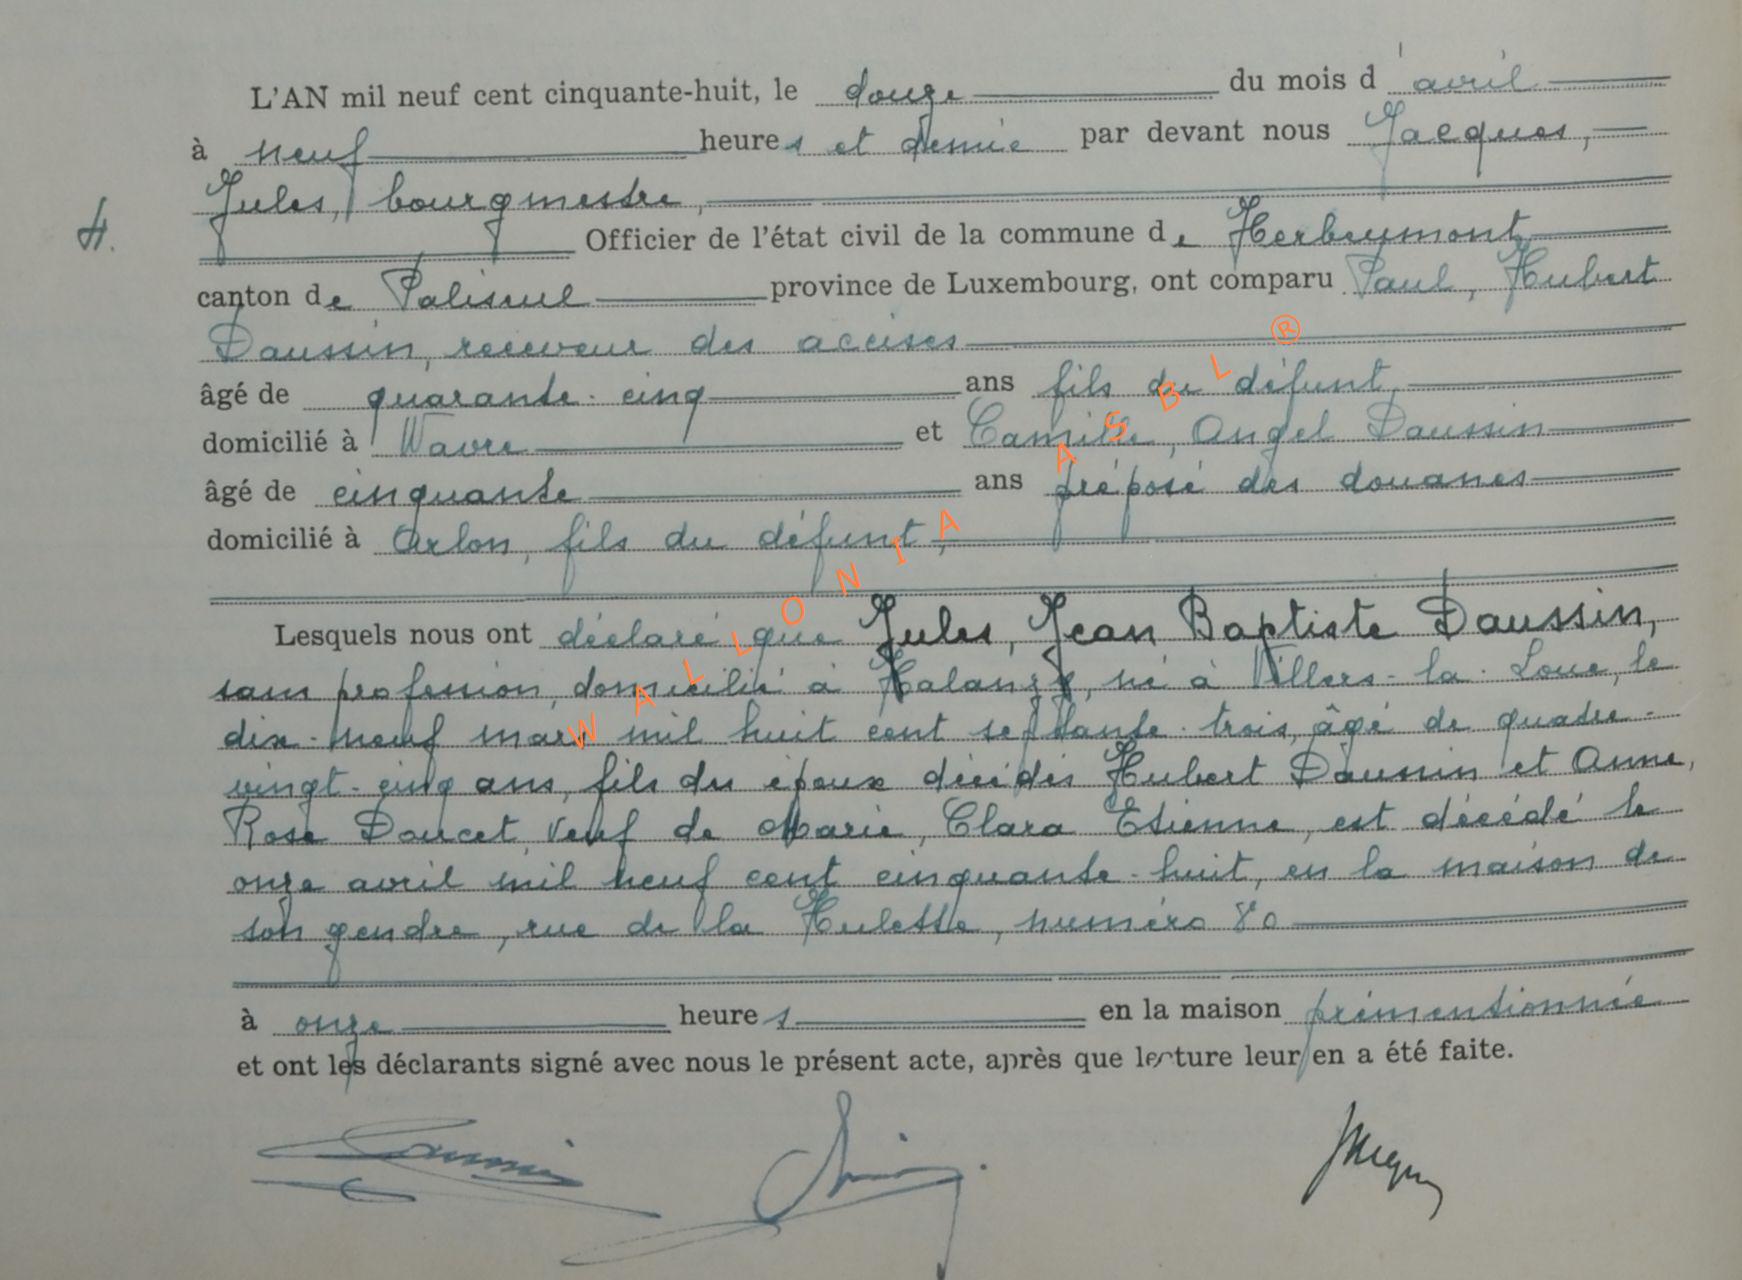 L'AN mil neuf cent cinquante-huit, le douze du mois d'avril
à neuf heures et demie par devant nous Jacques,
Jules, bourgmestre,
H. Officier de l'état civil de la commune de Herbeumont
canton de Paliseul province de Luxembourg, ont comparu Paul, Hubert
Daussin, receveur des accises
âgé de quarante-cinq ans fils du défunt,
domicilié à Wavre et Camille, Angel Daussin
âgé de cinquante ans préposé des douanes
domicilié à Arlon, fils du défunt,
Lesquels nous ont déclaré que Jules, Jean Baptiste Daussin,
sans profession, domicilié à Halanzy, né à Villers-la-Loue, le
dix-neuf mars mil huit cent septante-trois, âgé de quatre-
vingt-cinq ans, fils des époux décédés Hubert Daussin et Anne,
Rose Doucet, veuf de Marie, Clara Etienne, est décédé le
onze avril mil neuf cent cinquante-huit, en la maison de
son gendre, rue de la Hulette, numéro 80
à onze heures en la maison prémentionnée
et ont les déclarants signé avec nous le présent acte, après que lecture leur en a été faite.
WALLONIA ASBL ®